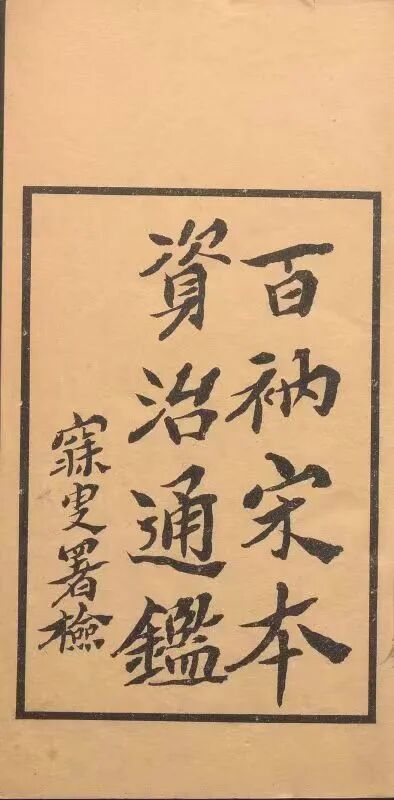 百衲宋本
資治通鑑
寐叟署檢